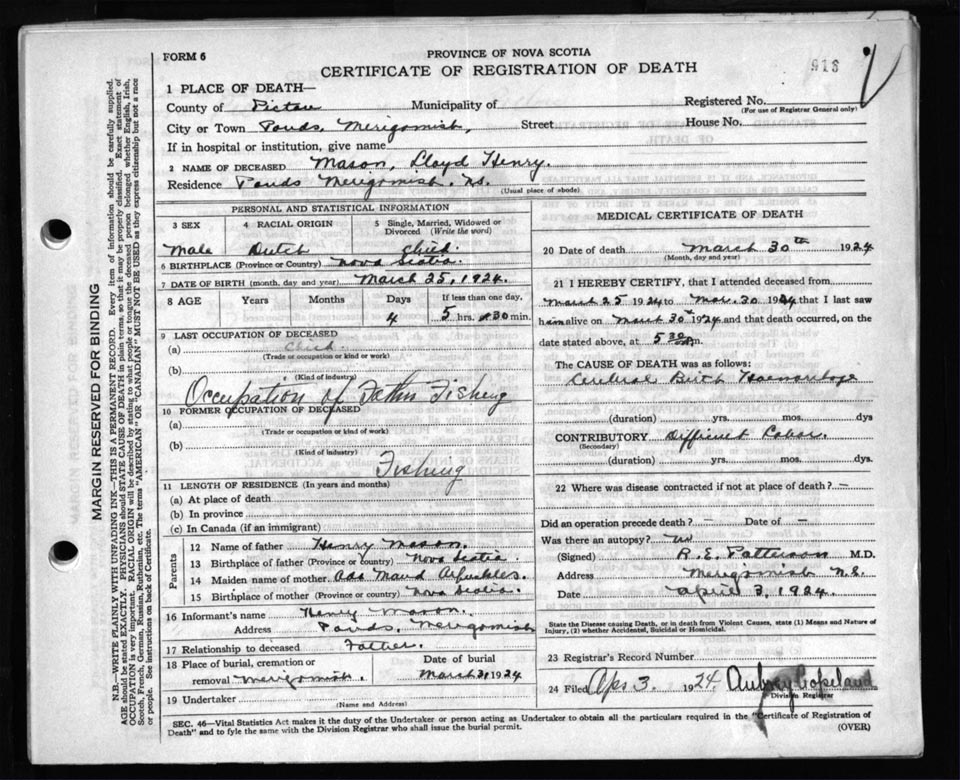 FORM 6
PROVINCE OF NOVA SCOTIA
CERTIFICATE OF REGISTRATION OF DEATH
918
1 PLACE OF DEATH—
County of Pictou Municipality of Registered No.
(For use of Registrar General only)
City or Town Ponds, Merigomish, Street House No.
If in hospital or institution, give name
2 NAME OF DECEASED Mason, Lloyd Henry.
Residence Ponds Merigomish. N.S.
(Usual place of abode)
PERSONAL AND STATISTICAL INFORMATION
3 SEX 4 RACIAL ORIGIN 5 Single, Married, Widowed or Divorced (Write the word)
Male Dutch Child.
6 BIRTHPLACE (Province or Country) Nova Scotia.
7 DATE OF BIRTH (month, day and year) March 25, 1924.
8 AGE Years Months Days If less than one day,
4 5 hrs. 30 min.
9 LAST OCCUPATION OF DECEASED
(a) Child.
(Trade or occupation or kind of work)
(b)
(Kind of industry)
Occupation of Father Fishing
10 FORMER OCCUPATION OF DECEASED
(a)
(Trade or occupation or kind of work)
(b)
(Kind of industry)
Fishing
11 LENGTH OF RESIDENCE (In years and months)
(a) At place of death
(b) In province
(c) In Canada (if an immigrant)
Parents
12 Name of father Henry Mason.
13 Birthplace of father (Province or country) Nova Scotia.
14 Maiden name of mother Ada Maud Arbuckles.
15 Birthplace of mother (Province or country) Nova Scotia.
16 Informant's name Henry Mason.
Address Ponds, Merigomish
17 Relationship to deceased Father.
18 Place of burial, cremation or removal Merigomish. Date of burial March 31 1924
19 Undertaker
(Name and Address)
MEDICAL CERTIFICATE OF DEATH
20 Date of death March 30th 1924
(Month, day and year)
21 I HEREBY CERTIFY, that I attended deceased from
March 25 1924 to Mar. 30 1924 that I last saw
him alive on March 30th 1924 and that death occurred, on the
date stated above, at 5 30 m.
The CAUSE OF DEATH was as follows:
Cerebral Birth Haemorrhage
(duration) yrs. mos. dys
CONTRIBUTORY Difficult Labor.
(Secondary)
(duration) yrs. mos. dys.
22 Where was disease contracted if not at place of death? —
Did an operation precede death? — Date of —
Was there an autopsy? no
(Signed) R. E. Patterson M.D.
Address Merigomish N.S.
Date April 3, 1924.
State the Disease causing Death, or in death from Violent Causes, state (1) Means and Nature of
Injury, (2) whether Accidental, Suicidal or Homicidal.
23 Registrar's Record Number
24 Filed Apr 3 1924. Aubrey Copeland
Division Registrar
SEC. 46—Vital Statistics Act makes it the duty of the Undertaker or person acting as Undertaker to obtain all the particulars required in the "Certificate of Registration of
Death" and to fyle the same with the Division Registrar who shall issue the burial permit. (OVER)
MARGIN RESERVED FOR BINDING
N.B.—WRITE PLAINLY WITH UNFADING INK—THIS IS A PERMANENT RECORD. Every item of information should be carefully supplied.
AGE should be stated EXACTLY. PHYSICIANS should STATE CAUSE OF DEATH in plain terms, so that it may be properly classified. Exact statement of
OCCUPATION is very important. RACIAL ORIGIN will be described by stating to what people or tongue the deceased person belonged whether English, Irish,
Scotch, French, German, Russian, Ruthenian, etc. The terms "AMERICAN" OR "CANADIAN" MUST NOT BE USED as they express citizenship but not a race
or people. See instructions on back of Certificate.